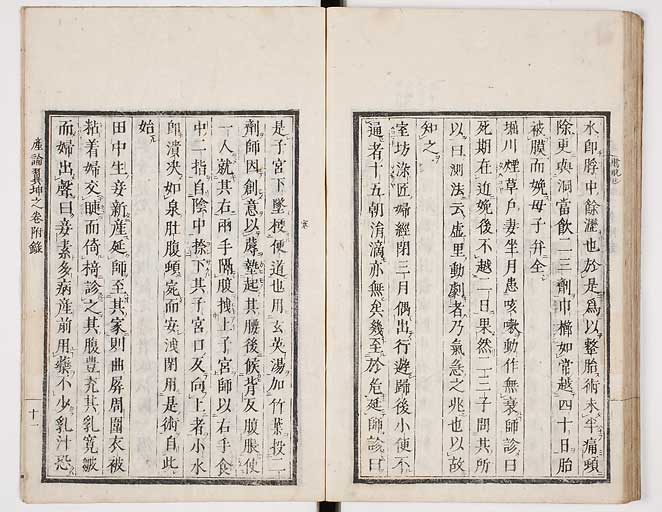 水即脬中餘瀝也於是爲以整胎術未半痛頓
除更與洞當飲二三劑巾櫛如常越四十日胎
被膜而娩母子弁全
堀川煙草戶妻坐月患咳嗽動作無衰師診曰
死期在近娩後不越二日果然二三子問其所
以曰測法云虛里動劇者乃氣急之兆也以故
知之
室坊染匠婦經閉三月偶出行遊歸後小便不
通者十五朝淯滴亦無矣幾至於危延師診曰
是子宮下墜壓便道也用玄英湯加竹葉投一
劑師因創意以蓐墊起其腰後候背反腹脹使
一人就其右兩手隔腹拽上子宮師以右手食
中二指自陰中捺下其子宮口反向上者小水
即潰決如泉肚腹頓寬而安洩閉用是術自此
始
田中生妾新產延師至其家則曲屏周圍衣被
粘着婦交睫而倚椅診之其腹豊充其乳寬皺
而婦出聲曰妾素多病產前用藥不少乳汁恐
產論翼坤之卷附錄
十一